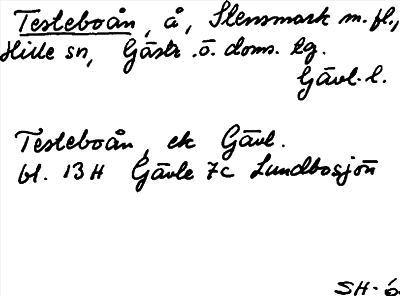 Testeboån, å, Stensmark m. fl.,
Hille sn, Gästr. ö. doms. lg.
Gävl. l.
Testeboån, ek Gävl.
bl. 13 H Gävle 7c Lundbosjön
SH-6